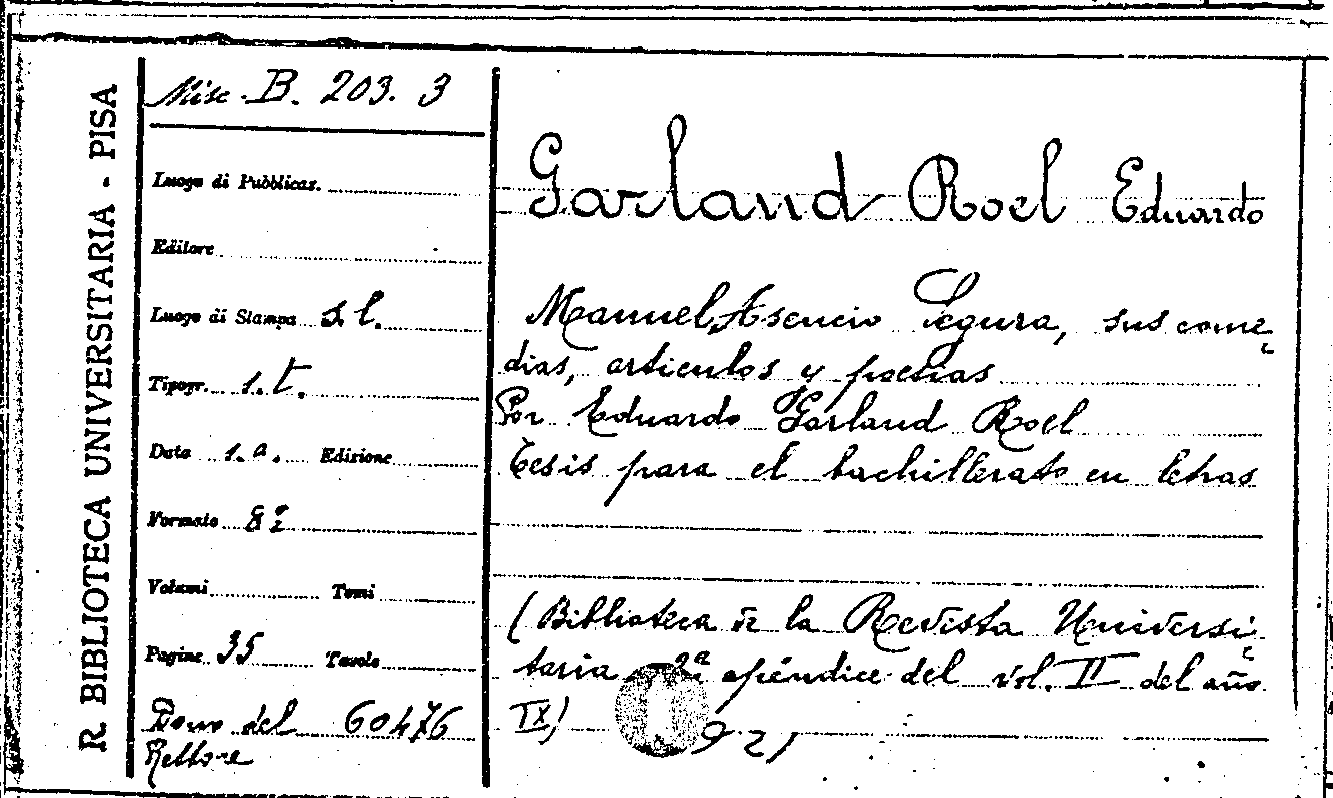 R. BIBLIOTECA UNIVERSITARIA - PISA
Misc. B. 203. 3
Luogo di Pubblicaz.
Editore
Luogo di Stampa s. l.
Tipogr. s. t.
Data s. a. Edizione
Formato 8º
Volumi Tomi
Pagine 35 Tavole
Dono del 60476
Rettore
Garland Roel Eduardo
Manuel Asencio Segura, sus come-
dias, articulos y poesias
Por Eduardo Garland Roel
Tesis para el bachillerato en letras
(Biblioteca de la Revista Universi-
taria 2ª apéndice del vol. II del año
IX)
921